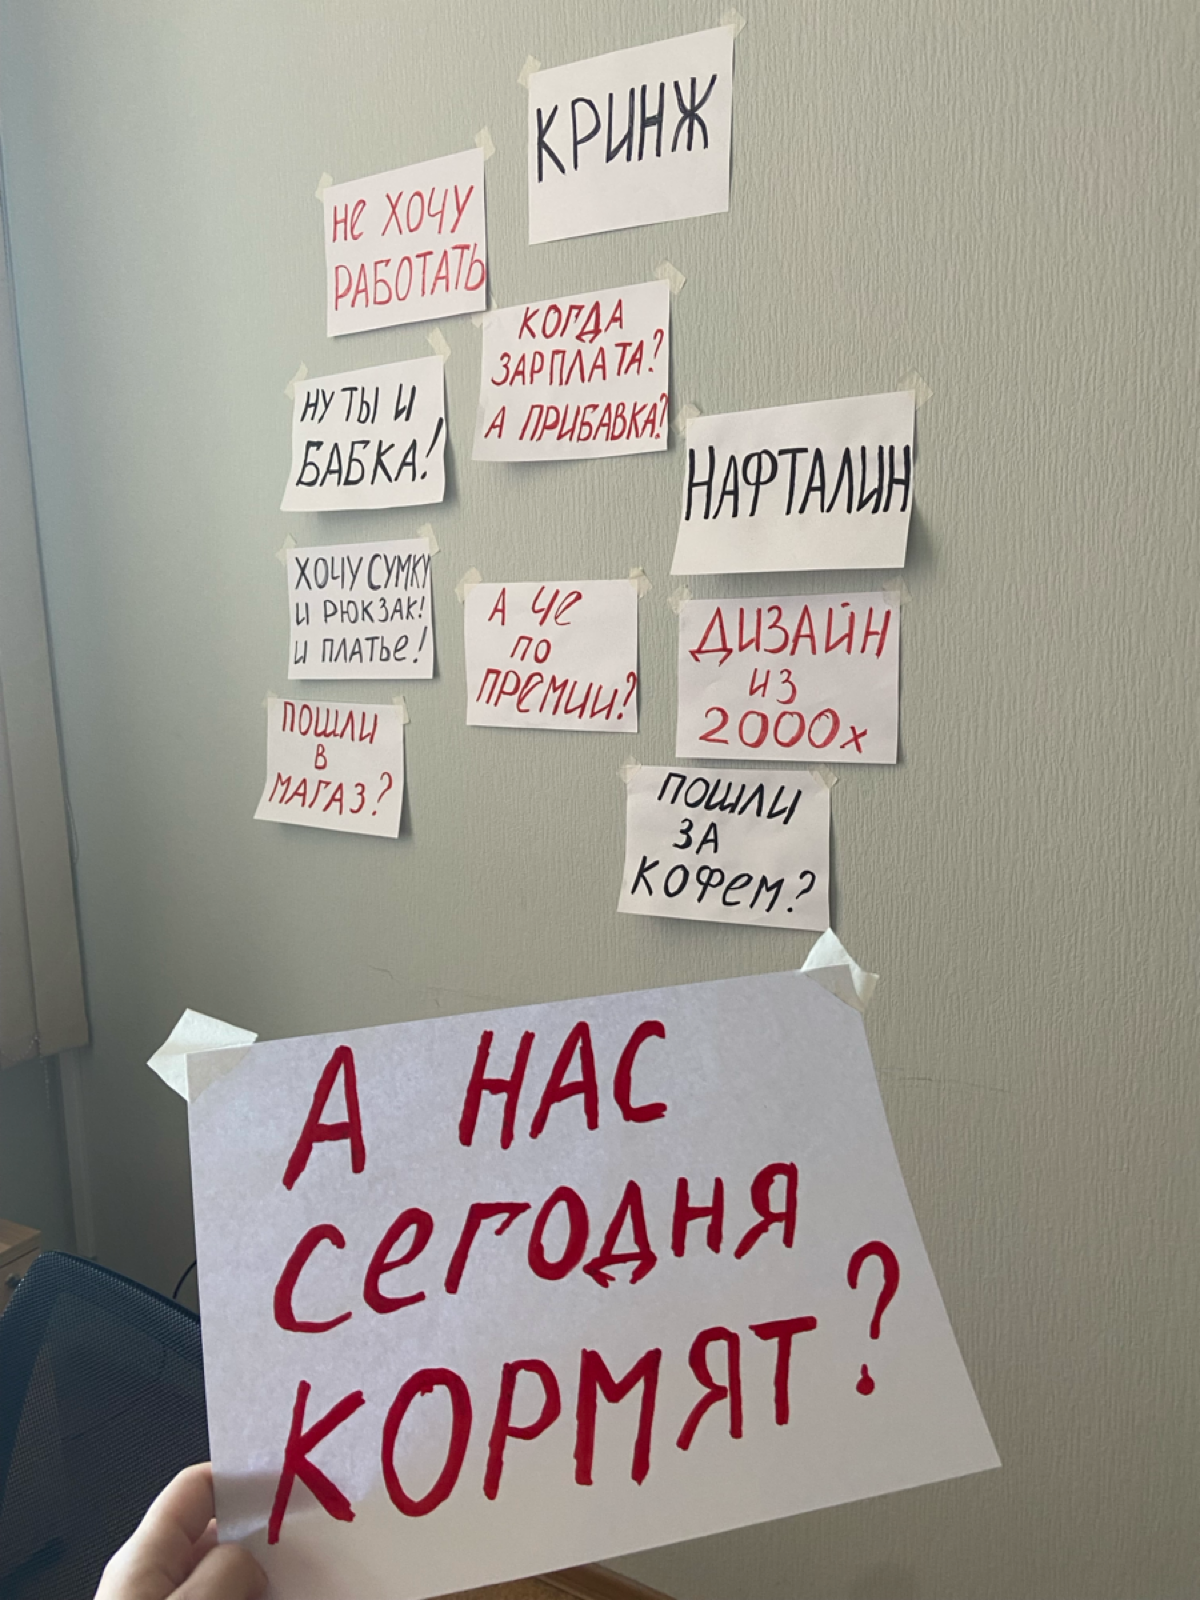 КРИНЖ
Не ХОЧУ
РАБОТАТЬ
КОГДА
ЗАРПЛАТА?
А ПРИБАВКА?
НУ ТЫ И
БАБКА!
НАФТАЛИН
ХОЧУ СУМКУ
И РЮКЗАК!
И ПЛАТЬе!
А Че
ПО
ПРеМИИ?
ДИЗАЙН
ИЗ
2000х
ПОШЛИ
В
МАГАЗ?
ПОШЛИ
ЗА
КОФеМ?
А НАС
СеГОДНЯ
КОРМЯТ?